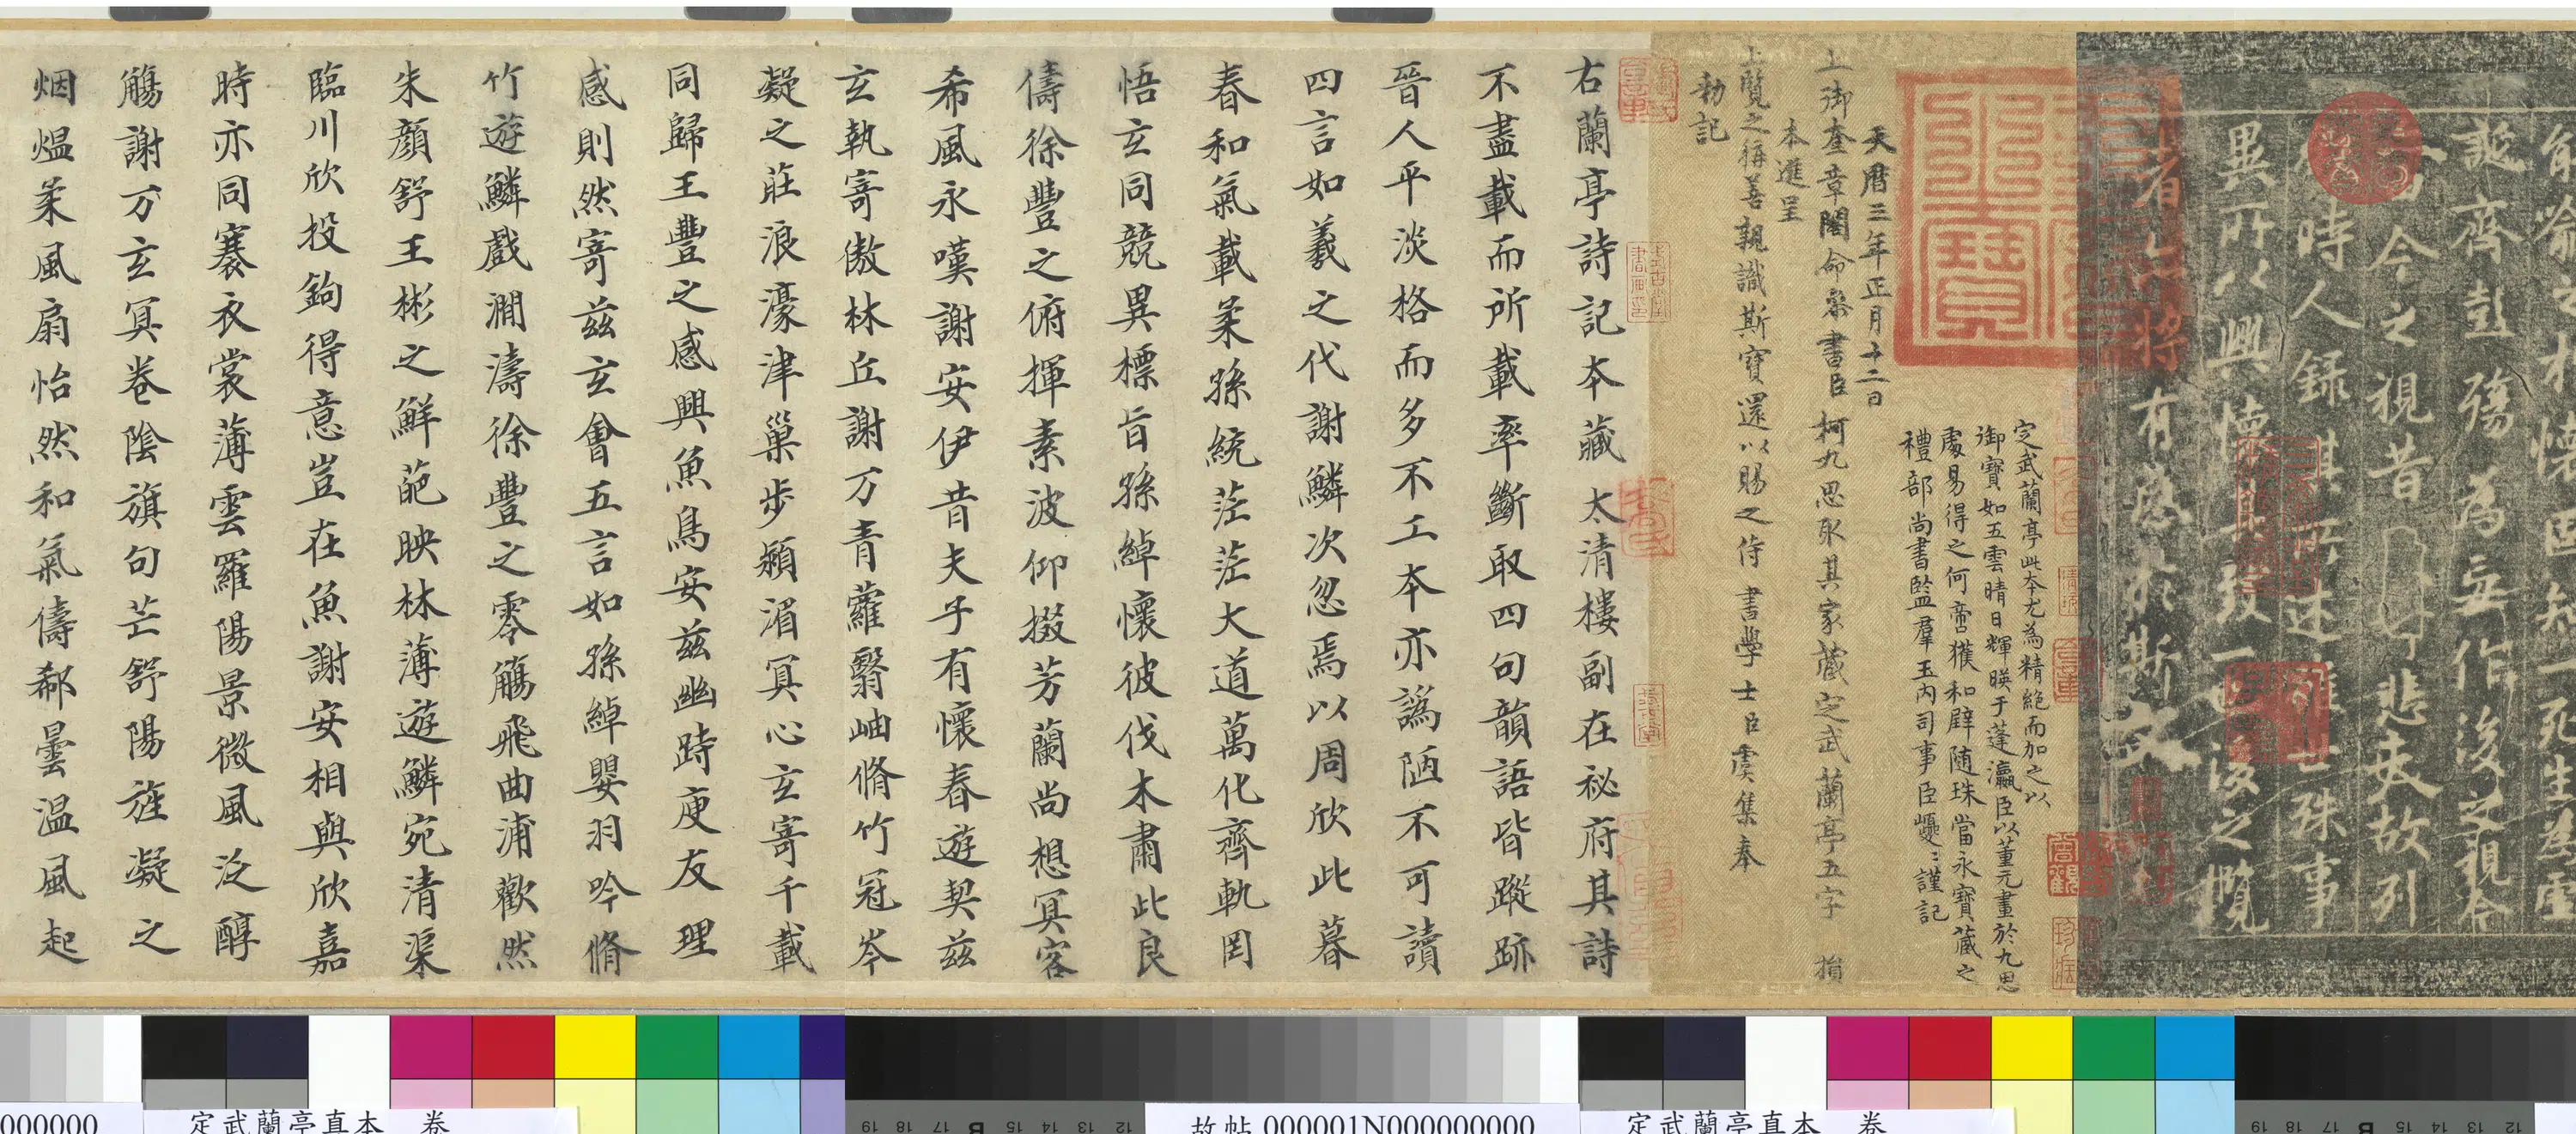 能喻之於懷固知一死生為虛
誕齊彭殤為妄作後之視今
今之視昔悲夫故列
時人錄其所述雖世殊事
異所以興懷其致一也後之攬
者亦將有感於斯文
定武蘭亭此本尤為精絕而加之以
御寶如五雲晴日輝暎于蓬瀛臣以董元畫於九思
處易得之何啻獲和璧随珠當永寶藏之
禮部尚書監羣玉內司事臣巙〻謹記
天曆三年正月十二日
上御奎章閣命參書臣柯九思取其家藏定武蘭亭五字損
本進呈
上覽之稱善親識斯寶還以賜之侍書學士臣虞集奉
勑記
右蘭亭詩記本藏太清樓副在祕府其詩
不盡載而所載率斷取四句韻語皆蹤跡
晉人平淡格而多不工本亦譌陋不可讀
四言如羲之代謝鱗次忽焉以周欣此暮
春和氣載柔孫統茫茫大道萬化齊軌罔
悟玄同競異標旨孫綽懷彼伐木肅此良
儔徐豐之俯揮素波仰掇芳蘭尚想冥客
希風永嘆謝安伊昔夫子有懷春遊契茲
玄執寄傲林丘謝万青蘿翳岫脩竹冠岑
凝之莊浪濠津巢步潁湄冥心玄寄千載
同歸王豐之感興魚鳥安茲幽跱庾友理
感則然寄茲玄會五言如孫綽嬰羽吟脩
竹遊鱗戲澗濤徐豐之零觴飛曲浦歡然
朱顏舒王彬之鮮葩映林薄遊鱗宛清渠
臨川欣投鉤得意豈在魚謝安相與欣嘉
時亦同褰衣裳薄雲羅陽景微風泛醇
觴謝万玄冥卷陰旗句芒舒陽旌凝之
烟熅柔風扇怡然和氣儔郗曇溫風起
000000
定武蘭亭真本 卷
故帖 000001N000000000
定武蘭亭真本 卷